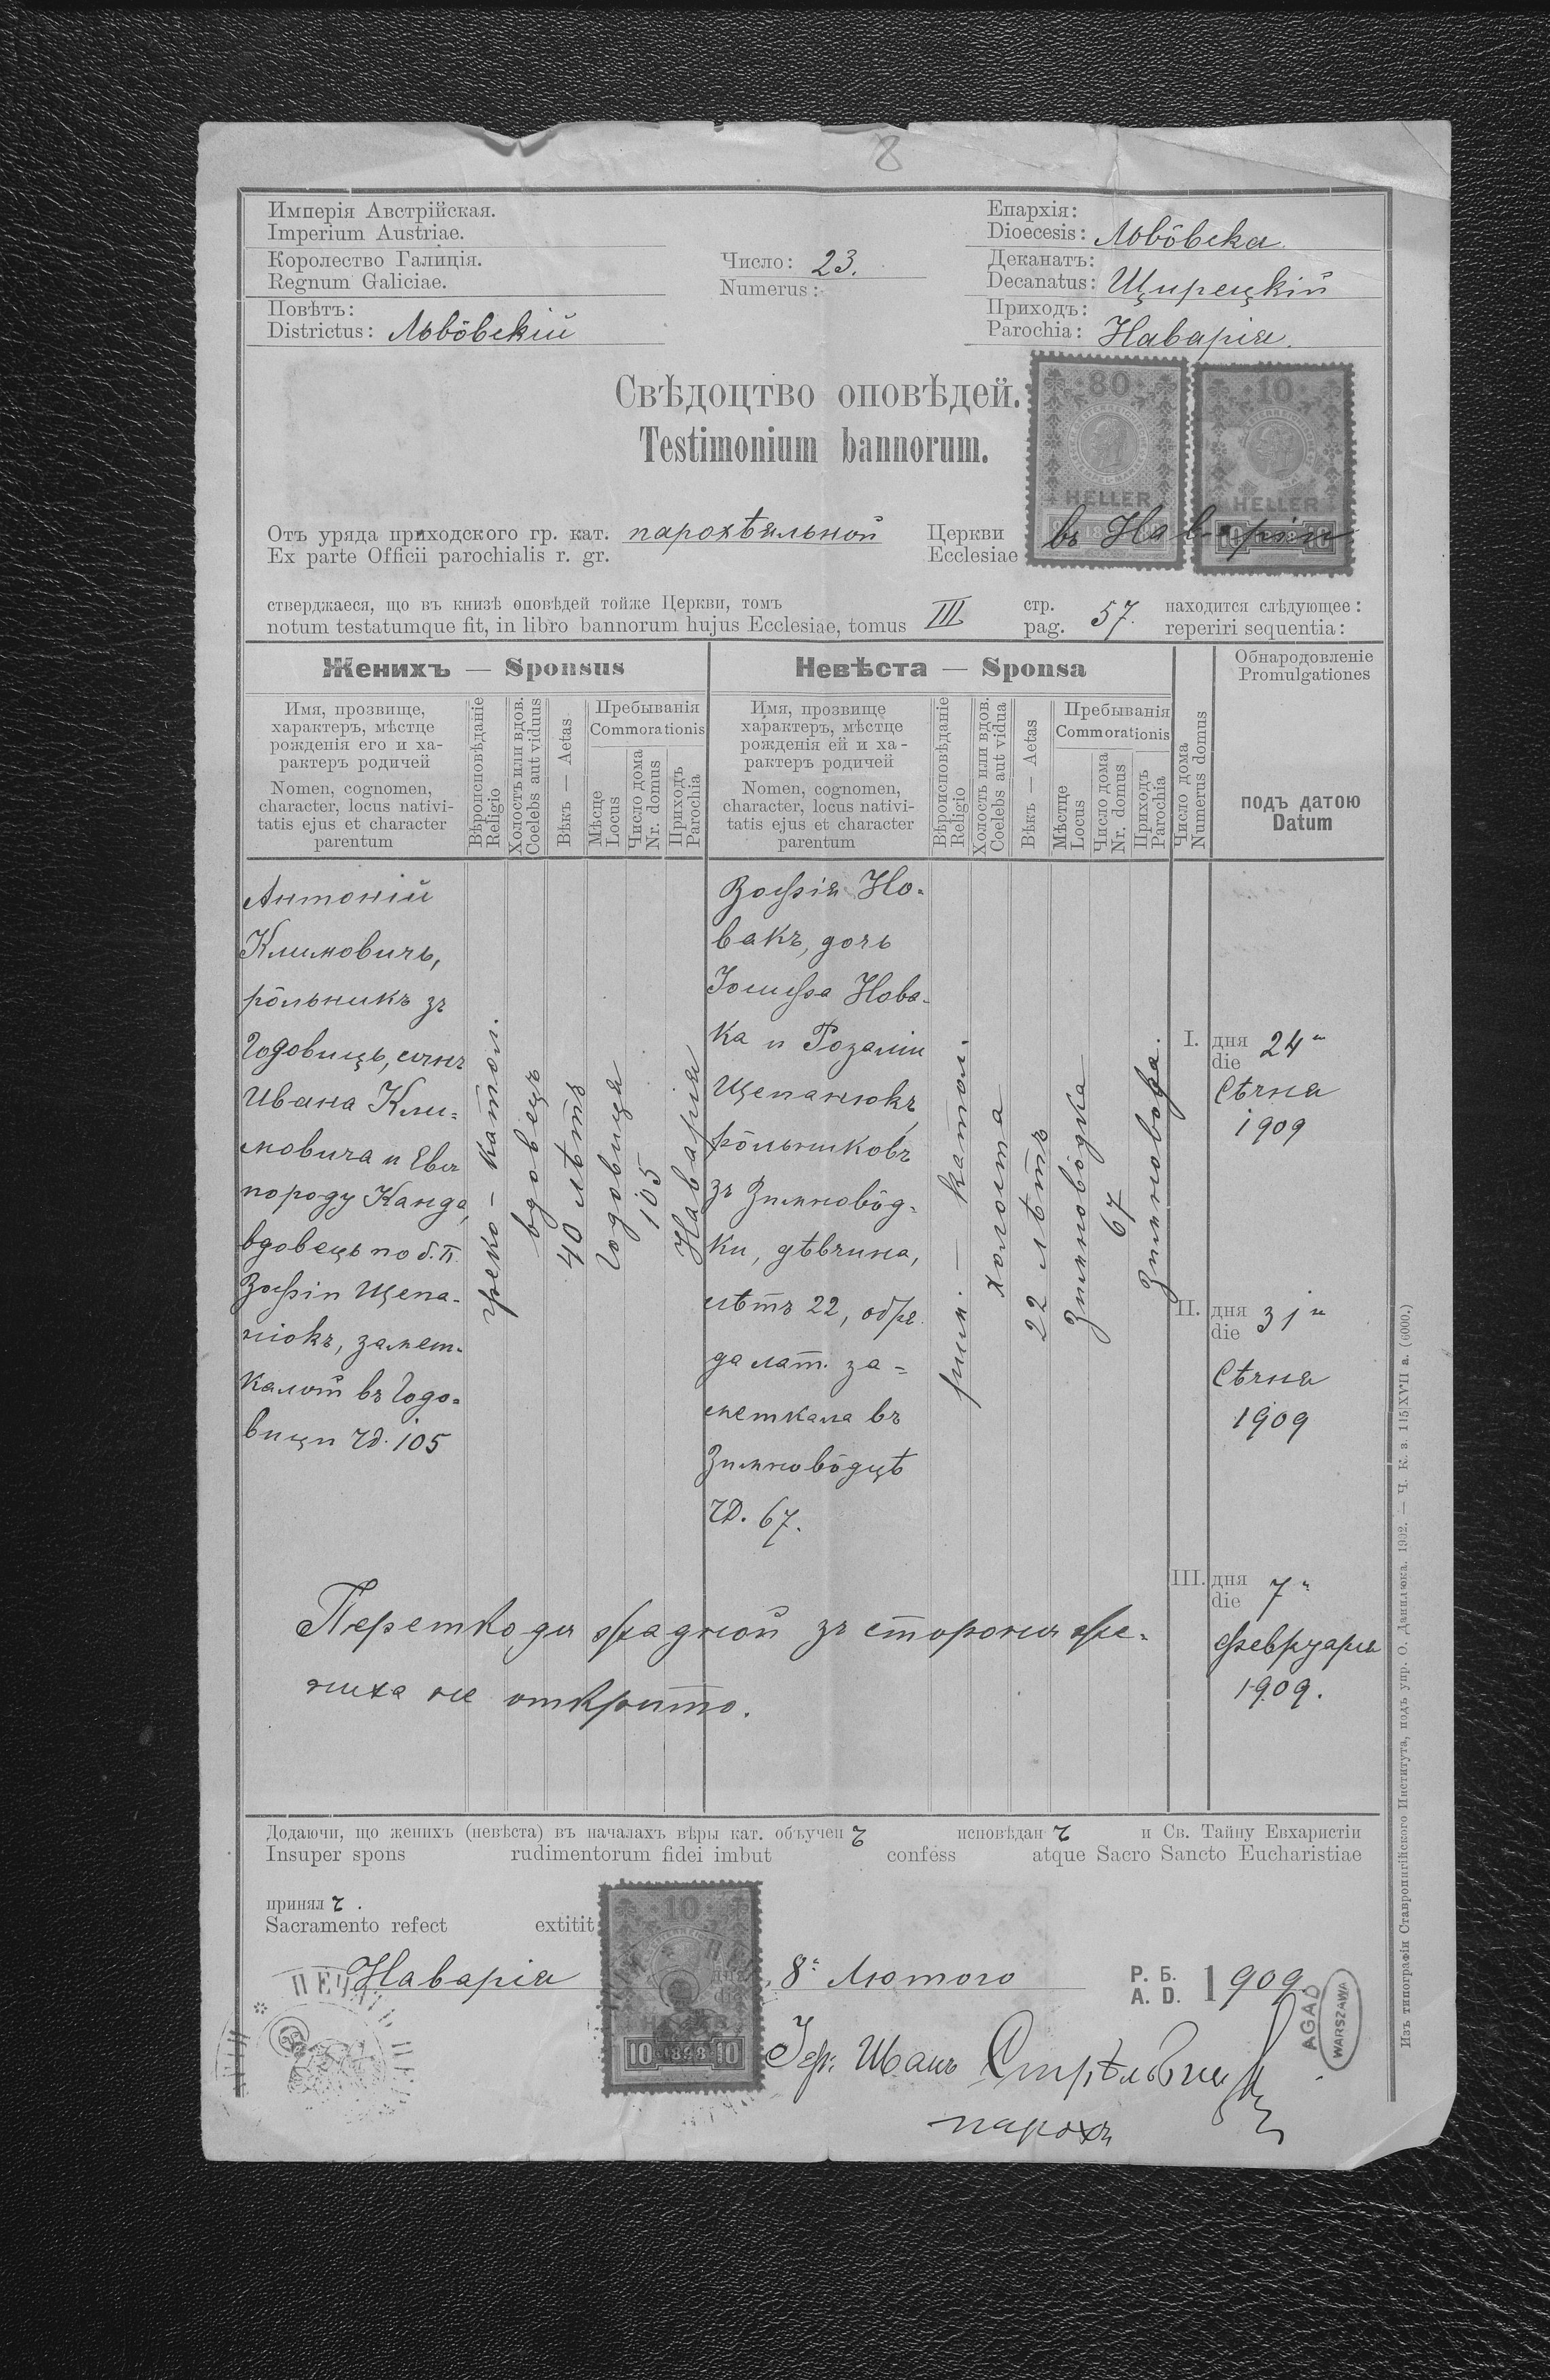 8
Имперія Австрійская.
Imperium Austriae.
Королество Галиція.
Regnum Galiciae.
Повѣтъ:
Districtus: Львôвскій
Число: 23.
Numerus:
Епархія:
Dioecesis: Львôвска
Деканатъ:
Decanatus: Щирецкій
Приходъ:
Parochia: Наварія.
Свѣдоцтво оповѣдей.
Testimonium bannorum.
80
HELLER
10
HELLER
Отъ уряда приходского гр. кат. парохіяльной Церкви въ Наваріи
Ex parte Officii parochialis r. gr. Ecclesiae
стверджаеся, що въ книзѣ оповѣдей тойже Церкви, томъ III стр. 57. находится слѣдующее:
notum testatumque fit, in libro bannorum hujus Ecclesiae, tomus pag. reperiri sequentia:
Женихъ — Sponsus
Имя, прозвище,
характеръ, мѣстце
рожденія его и ха-
рактеръ родичей
Nomen, cognomen,
character, locus nativi-
tatis ejus et character
parentum
Вѣроисповѣданіе
Religio
Холостъ или вдов.
Coelebs aut viduus
Вѣкъ — Aetas
Пребыванія
Commorationis
Мѣсце
Locus
Число дома
Nr. domus
Приходъ
Parochia
Невѣста — Sponsa
Имя, прозвище
характеръ, мѣстце
рожденія ей и ха-
рактеръ родичей
Nomen, cognomen,
character, locus nativi-
tatis ejus et character
parentum
Вѣроисповѣданіе
Religio
Холость или вдов.
Coelebs aut vidua
Вѣкъ — Aetas
Пребыванія
Commorationis
Мѣстце
Locus
Число дома
Nr. domus
Приходъ
Parochia
Число дома
Numerus domus
Обнародовленіе
Promulgationes
подъ датою
Datum
Антоній
Климовичъ,
рôльникъ зъ
Годовицъ, сынъ
Ивана Кли-
мовича и Евы
породу Канда,
вдовецъ по б. п.
Зофіи Щепа-
нюкъ, замеш-
калый въ Годо-
вици чд. 105
греко - катол.
вдовецъ
40 лѣтъ
Годовиця
105
Наварія
Зофія Но-
вакъ, дочь
Іосифа Нова-
ка и Розаліи
Щепанюкъ,
рôльниковъ
зъ Зимновôд-
ки, дѣвчина,
лѣтъ 22, обря-
да лат. за-
мешкала въ
Зимновôдцѣ
чд. 67.
рим. — катол.
холоста
22 лѣтъ
Зимновôдка
67
Зимновода.
I. дня 24го
die
Сѣчня
1909
II. дня 31го
die
Сѣчня
1909
III. дня 7го
die
Февруарія
1909.
Перешкоды жадной зъ стороны же-
ниха не открыто.
Додаючи, що женихъ (невѣста) въ началахъ вѣры кат. обученъ исповѣданъ и Св. Тайну Евхаристіи
Insuper spons rudimentorum fidei imbut confess atque Sacro Sancto Eucharistiae
принялъ.
Sacramento refect extitit
10
10 1898 10
Наварія 8го Лютого Р. Б. 1909
A. D.
Іер. Иванъ
парохъ
AGAD
WARSZAWA
Изъ типографіи Ставропигійского Института, подъ упр. О. Данилюка. 1902. — Ч. К. з. 115|XVII а. (6000.)